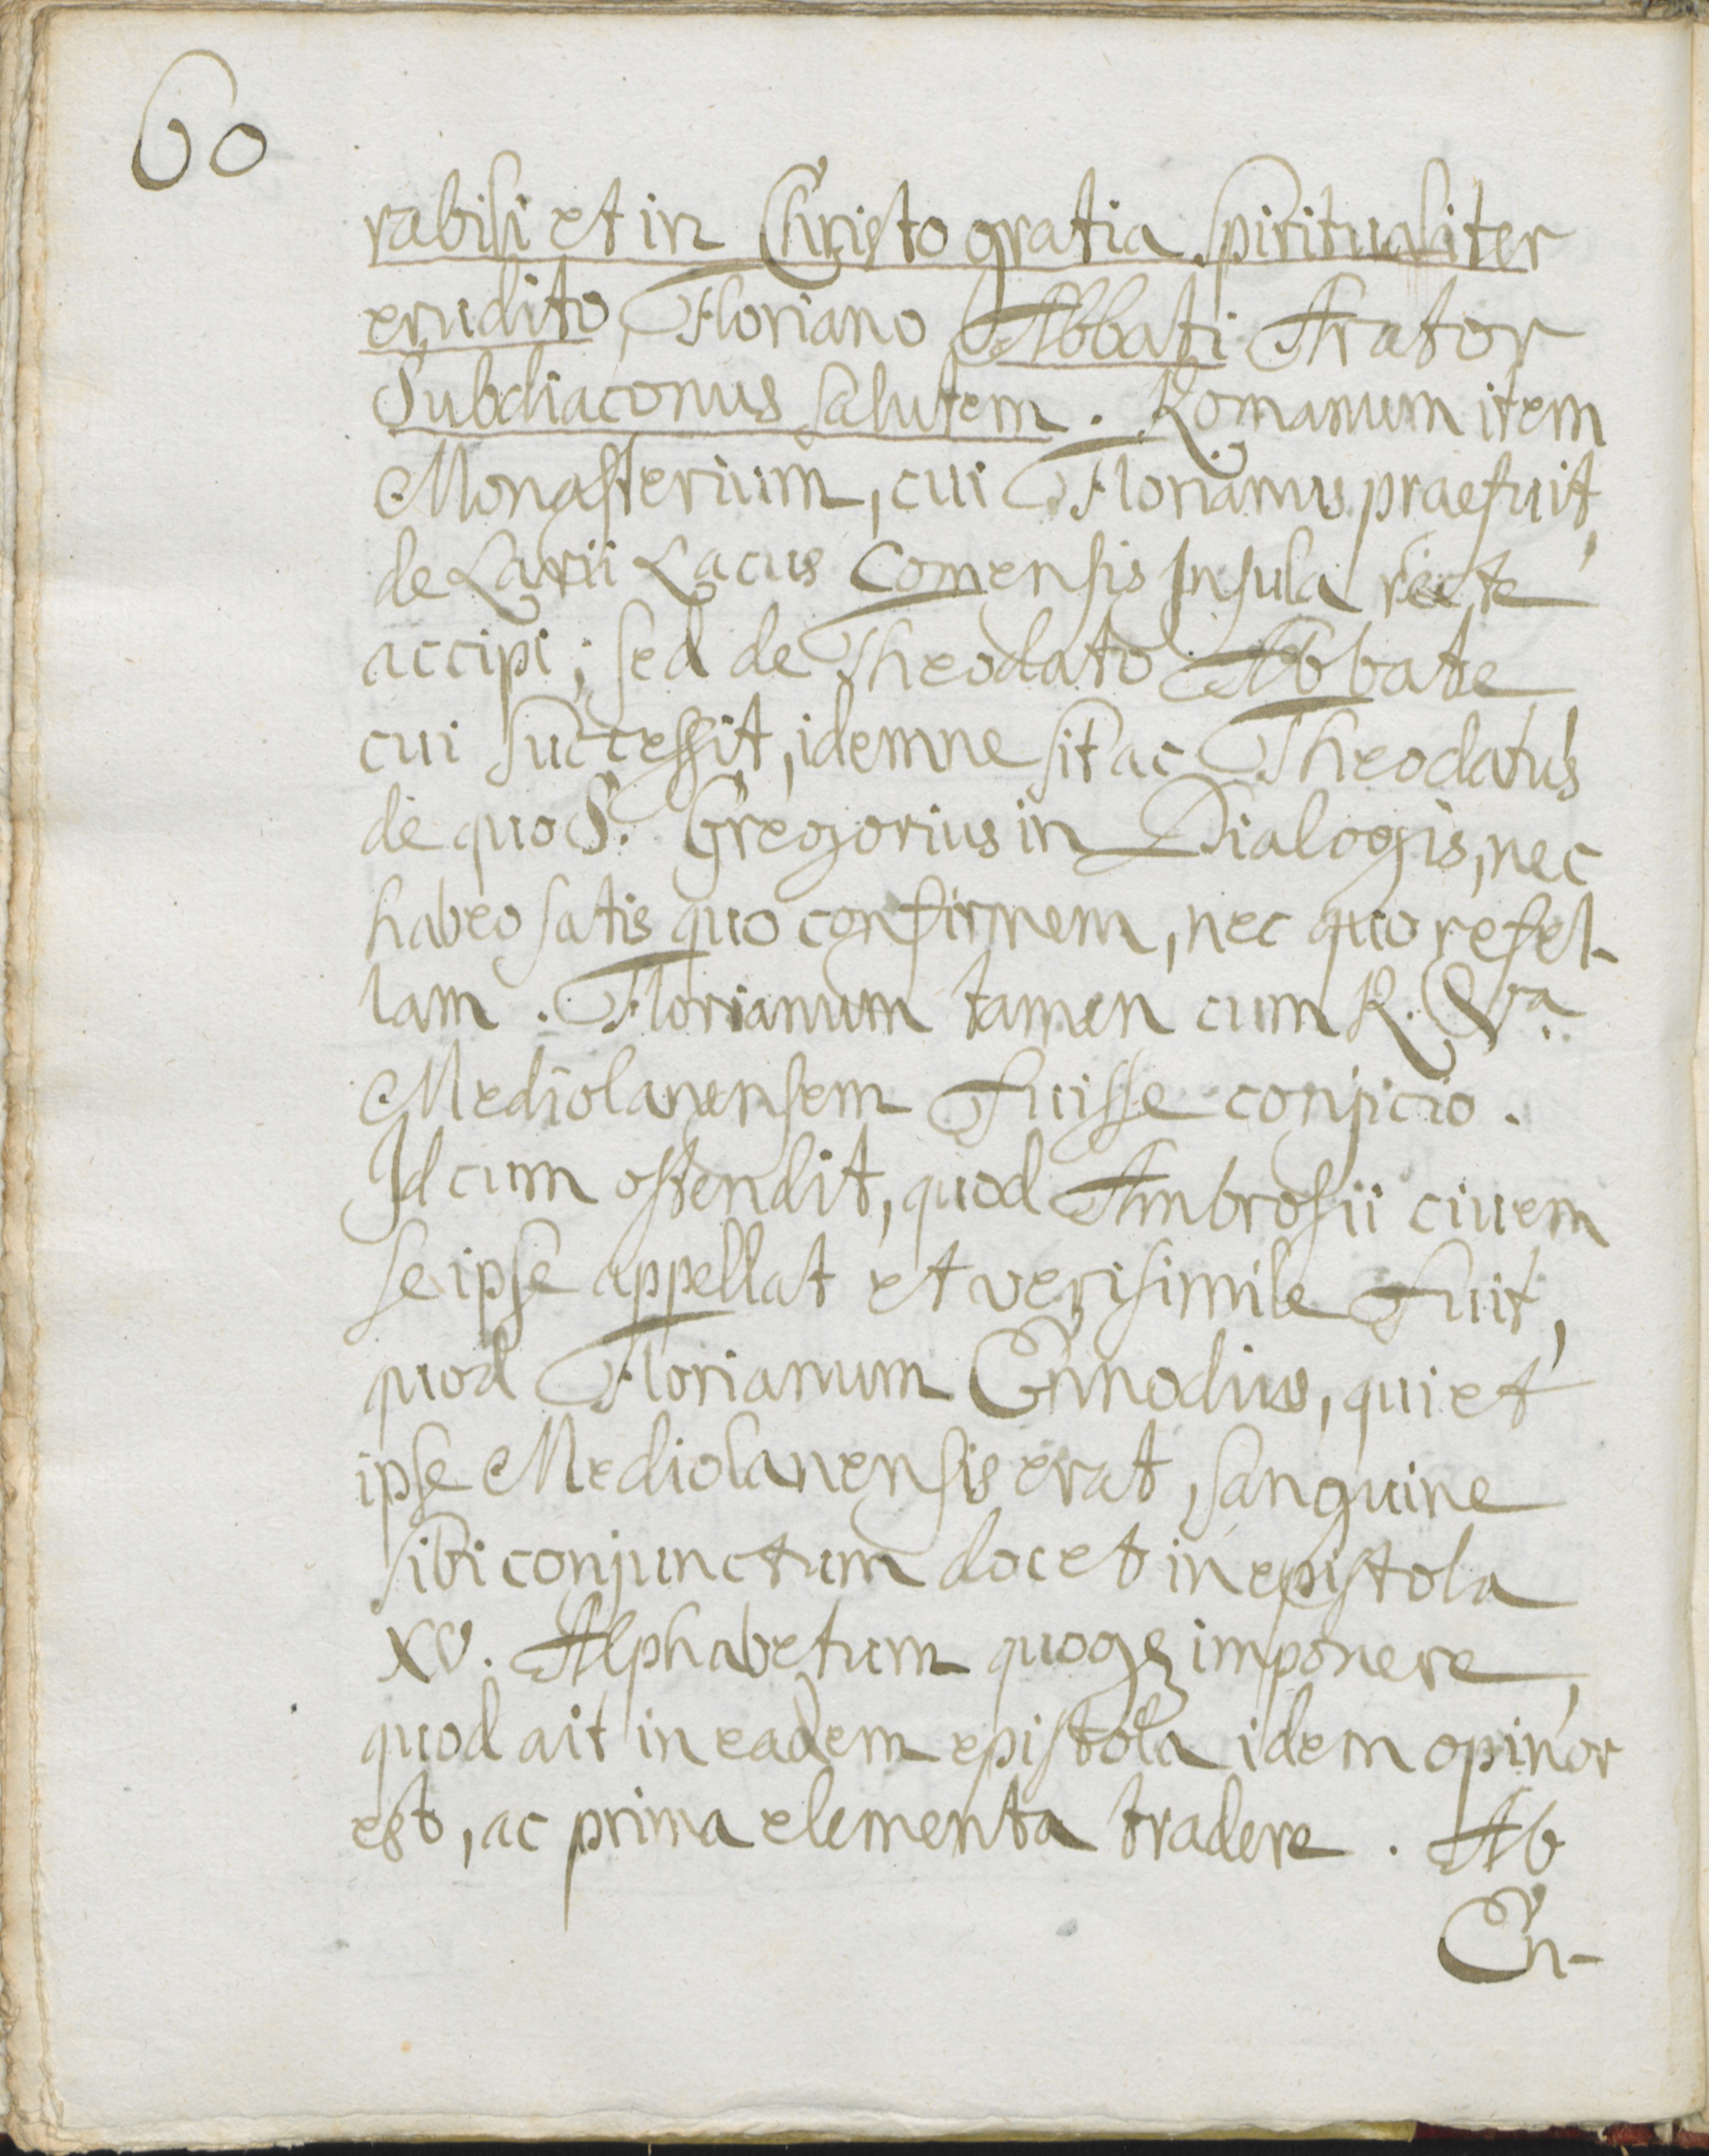 60
rabili et in Christo gratia spiritualiter
erudito Floriano Abbati Arator
Subdiaconus salutem. Romanum item
Monasterium, cui Florianus praefuit,
de Larii Lacus Comensis Insula recte
accipi; sed de Theodato Abbate
cui successit, idemne sit ac Theodatus
de quo S. Gregorius in Dialogis, nec
habeo satis quo confirmem, nec quo refel-
lam. Florianum tamen cum R. Vra.
Mediolanensem fuisse conjicio.
Id cum ostendit, quod Ambrosii ciuem
se ipse appellat et verisimile fuit,
quod Florianum Ennodius, qui et
ipse Mediolanensis erat, sanguine
sibi conjunctum docet in epistola
XV. Alphabetum quoqȝ imponere,
quod ait in eadem epistola idem opinor
est, ac prima elementa tradere. Ab
En-